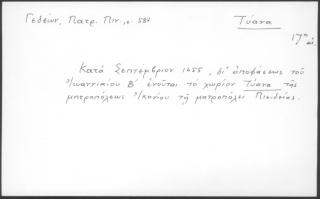 Γεδεών, Πατρ. Πιν., σ. 584
Τύανα
17ος αἰ.
Κατὰ Σεπτέμβριον 1655, δι' ἀποφάσεως τοῦ
Ἰωαννικίου Β΄ ἑνοῦται τὸ χωρίον Τύανα τῆς
μητροπόλεως Ἰκονίου τῇ μητροπόλει Πισιδείας.